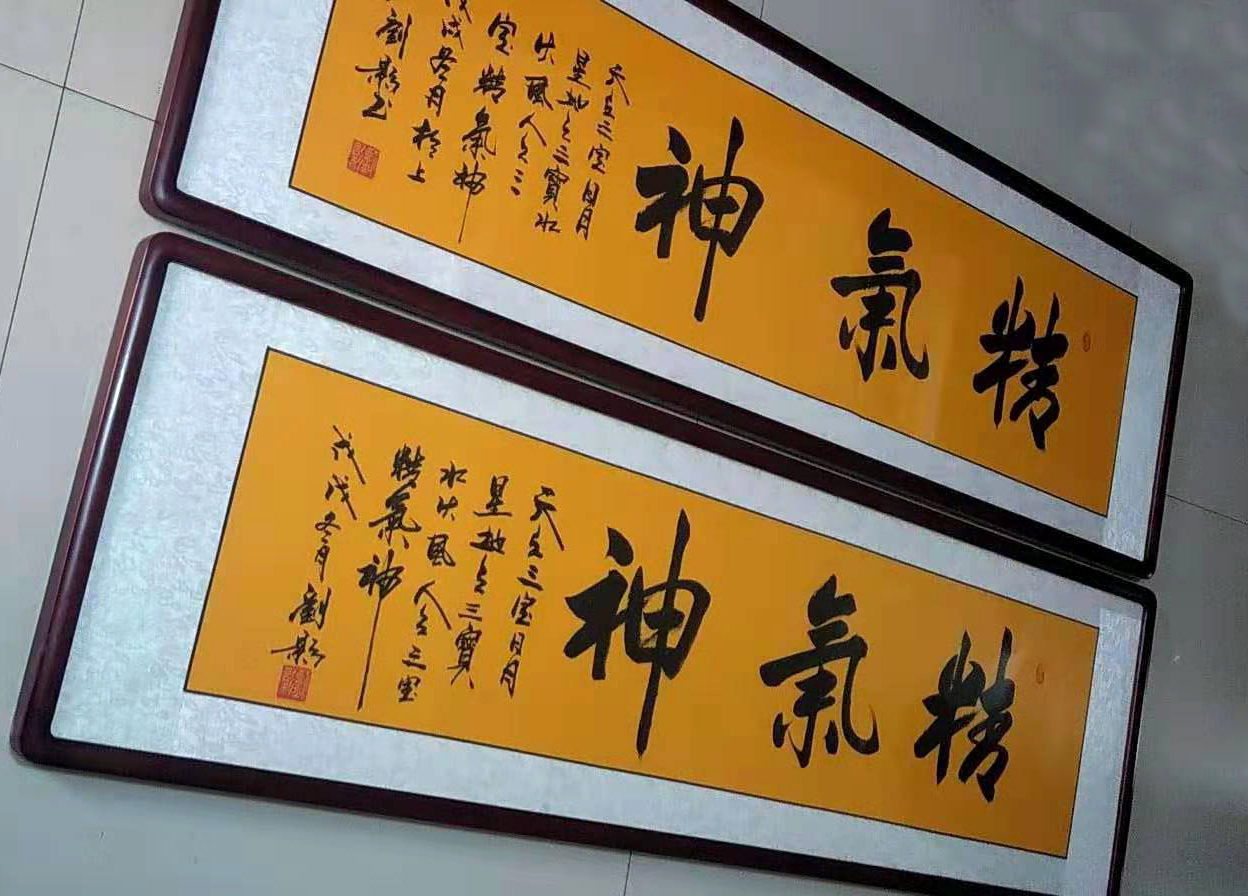 精氣神
天之三宝日月
星地之三寶水
火風人之三
宝精氣神
戊戌冬月於上
劉影书
精氣神
天之三宝日月
星地之三寶
水火風人之三宝
精氣神
戊戌冬月劉影